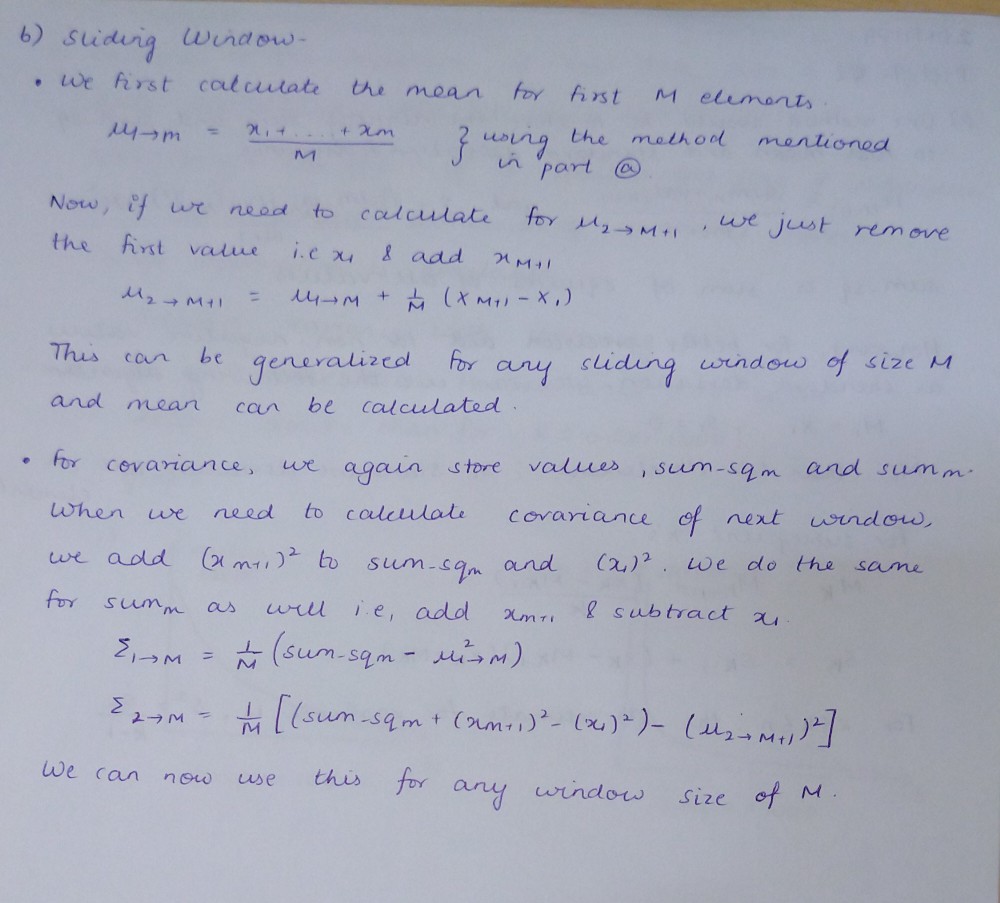 b) Sliding Window-
• We first calculate the mean for first M elements.
μ₁→m = x₁ + .... + xm / M } using the method mentioned in part ⓐ
Now, if we need to calculate for μ₂→M+1, we just remove
the first value i.e x₁ & add xM+1
μ₂→M+1 = μ₁→M + 1/M (xM+1 - x₁)
This can be generalized for any sliding window of size M
and mean can be calculated.
• For covariance, we again store values, sum-sqm and summ.
When we need to calculate covariance of next window,
we add (xm+1)² to sum-sqm and (x₁)². We do the same
for summ as well i.e, add xm+1 & subtract x₁.
Σ₁→M = 1/M (sum-sqm - μ²₁→M)
Σ₂→M = 1/M [(sum-sqm + (xm+1)² - (x₁)²) - (μ₂→M+1)²]
We can now use this for any window size of M.